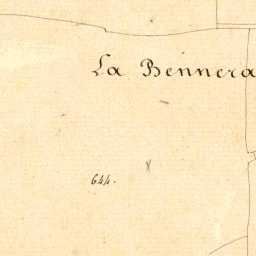 La Bennera
644.